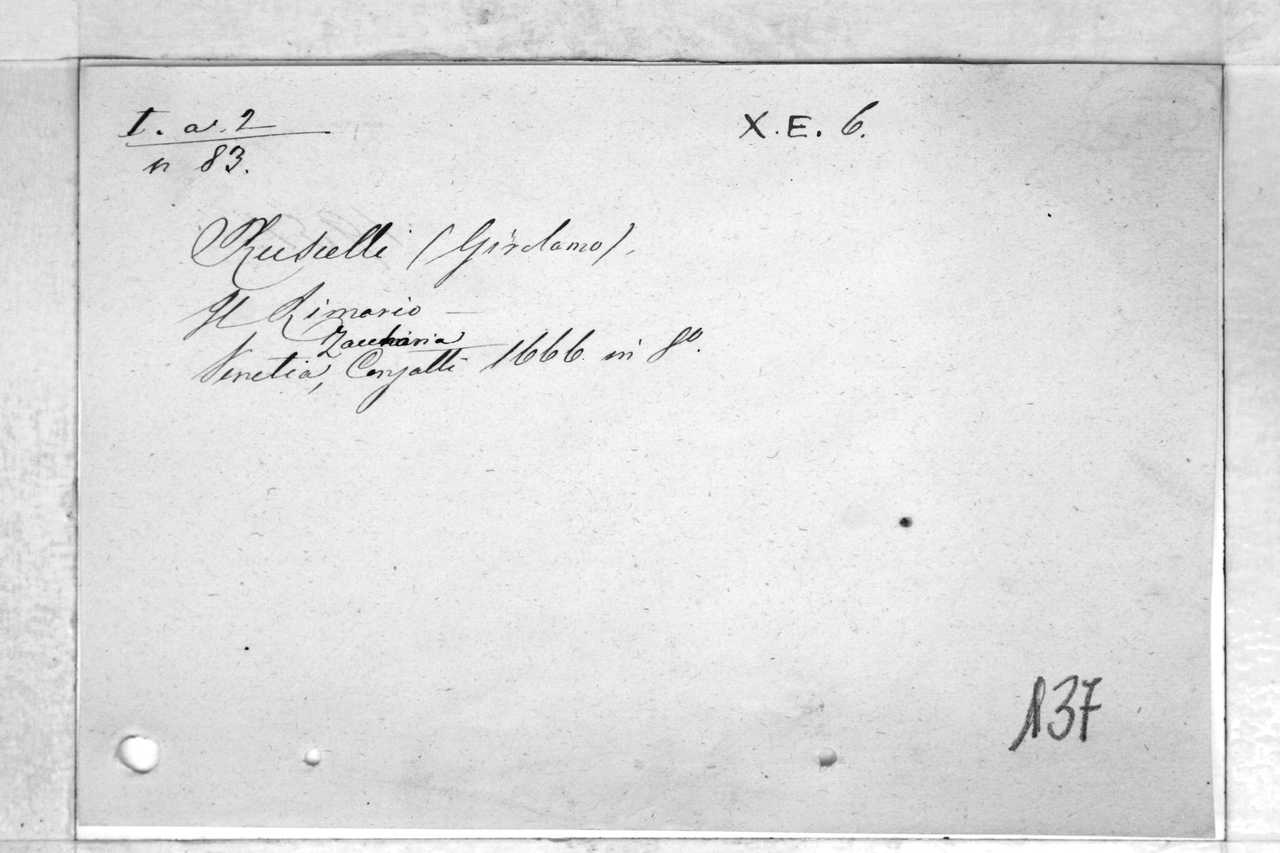 I. a. 2 X. E. 6.
n 83.
Ruscelli (Girolamo).
Il Rimario —
Zaccharia
Venetia, Conzatti 1666 in 8º.
137